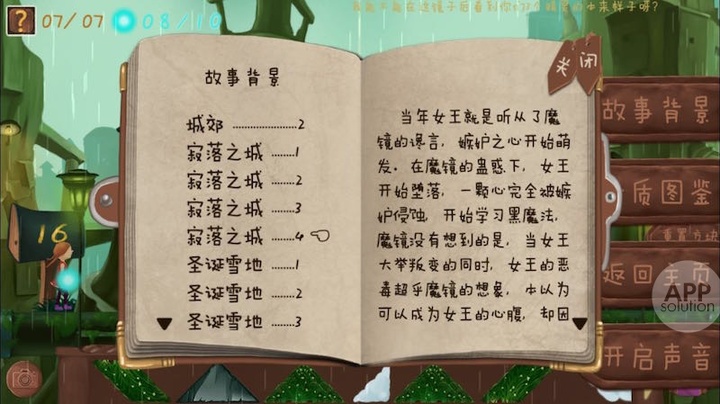 07/07 08/10
关闭
故事背景
城郊 ......................2
寂落之城 .........1
寂落之城 ..........2
寂落之城 ..........3
寂落之城 ..........4
圣诞雪地 .........1
圣诞雪地 ..........2
圣诞雪地 ..........3
当年女王就是听从了魔
镜的谗言，嫉妒之心开始萌
发。在魔镜的蛊惑下，女王
开始堕落，一颗心完全被嫉
妒侵蚀，开始学习黑魔法，
魔镜没有想到的是，当女王
大举叛变的同时，女王的恶
毒超乎魔镜的想象，本以为
可以成为女王的心腹，却因
故事背景
质图鉴
重置方块
返回主页
开启声音
16
APP
solution